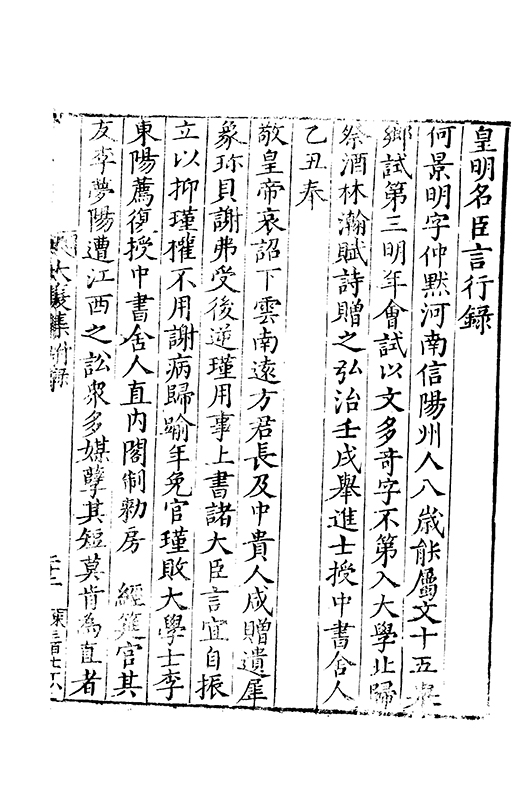 皇明名臣言行錄
何景明字仲黙河南信陽州人八歲能屬文十五舉
鄉試第三明年會試以文多竒字不第入大學比歸
祭酒林瀚賦詩贈之弘治壬戌舉進士授中書舍人
乙丑奉
敬皇帝哀詔下雲南遠方君長及中貴人咸贈遺犀
象珎貝謝弗受後逆瑾用事上書諸大臣言宜自振
立以抑瑾權不用謝病歸踰年免官瑾敗大學士李
東陽薦復授中書舍人直内閣制勑房 經筵官其
友李夢陽遭江西之訟衆多媒孽其短莫肯為直者
大復集附錄